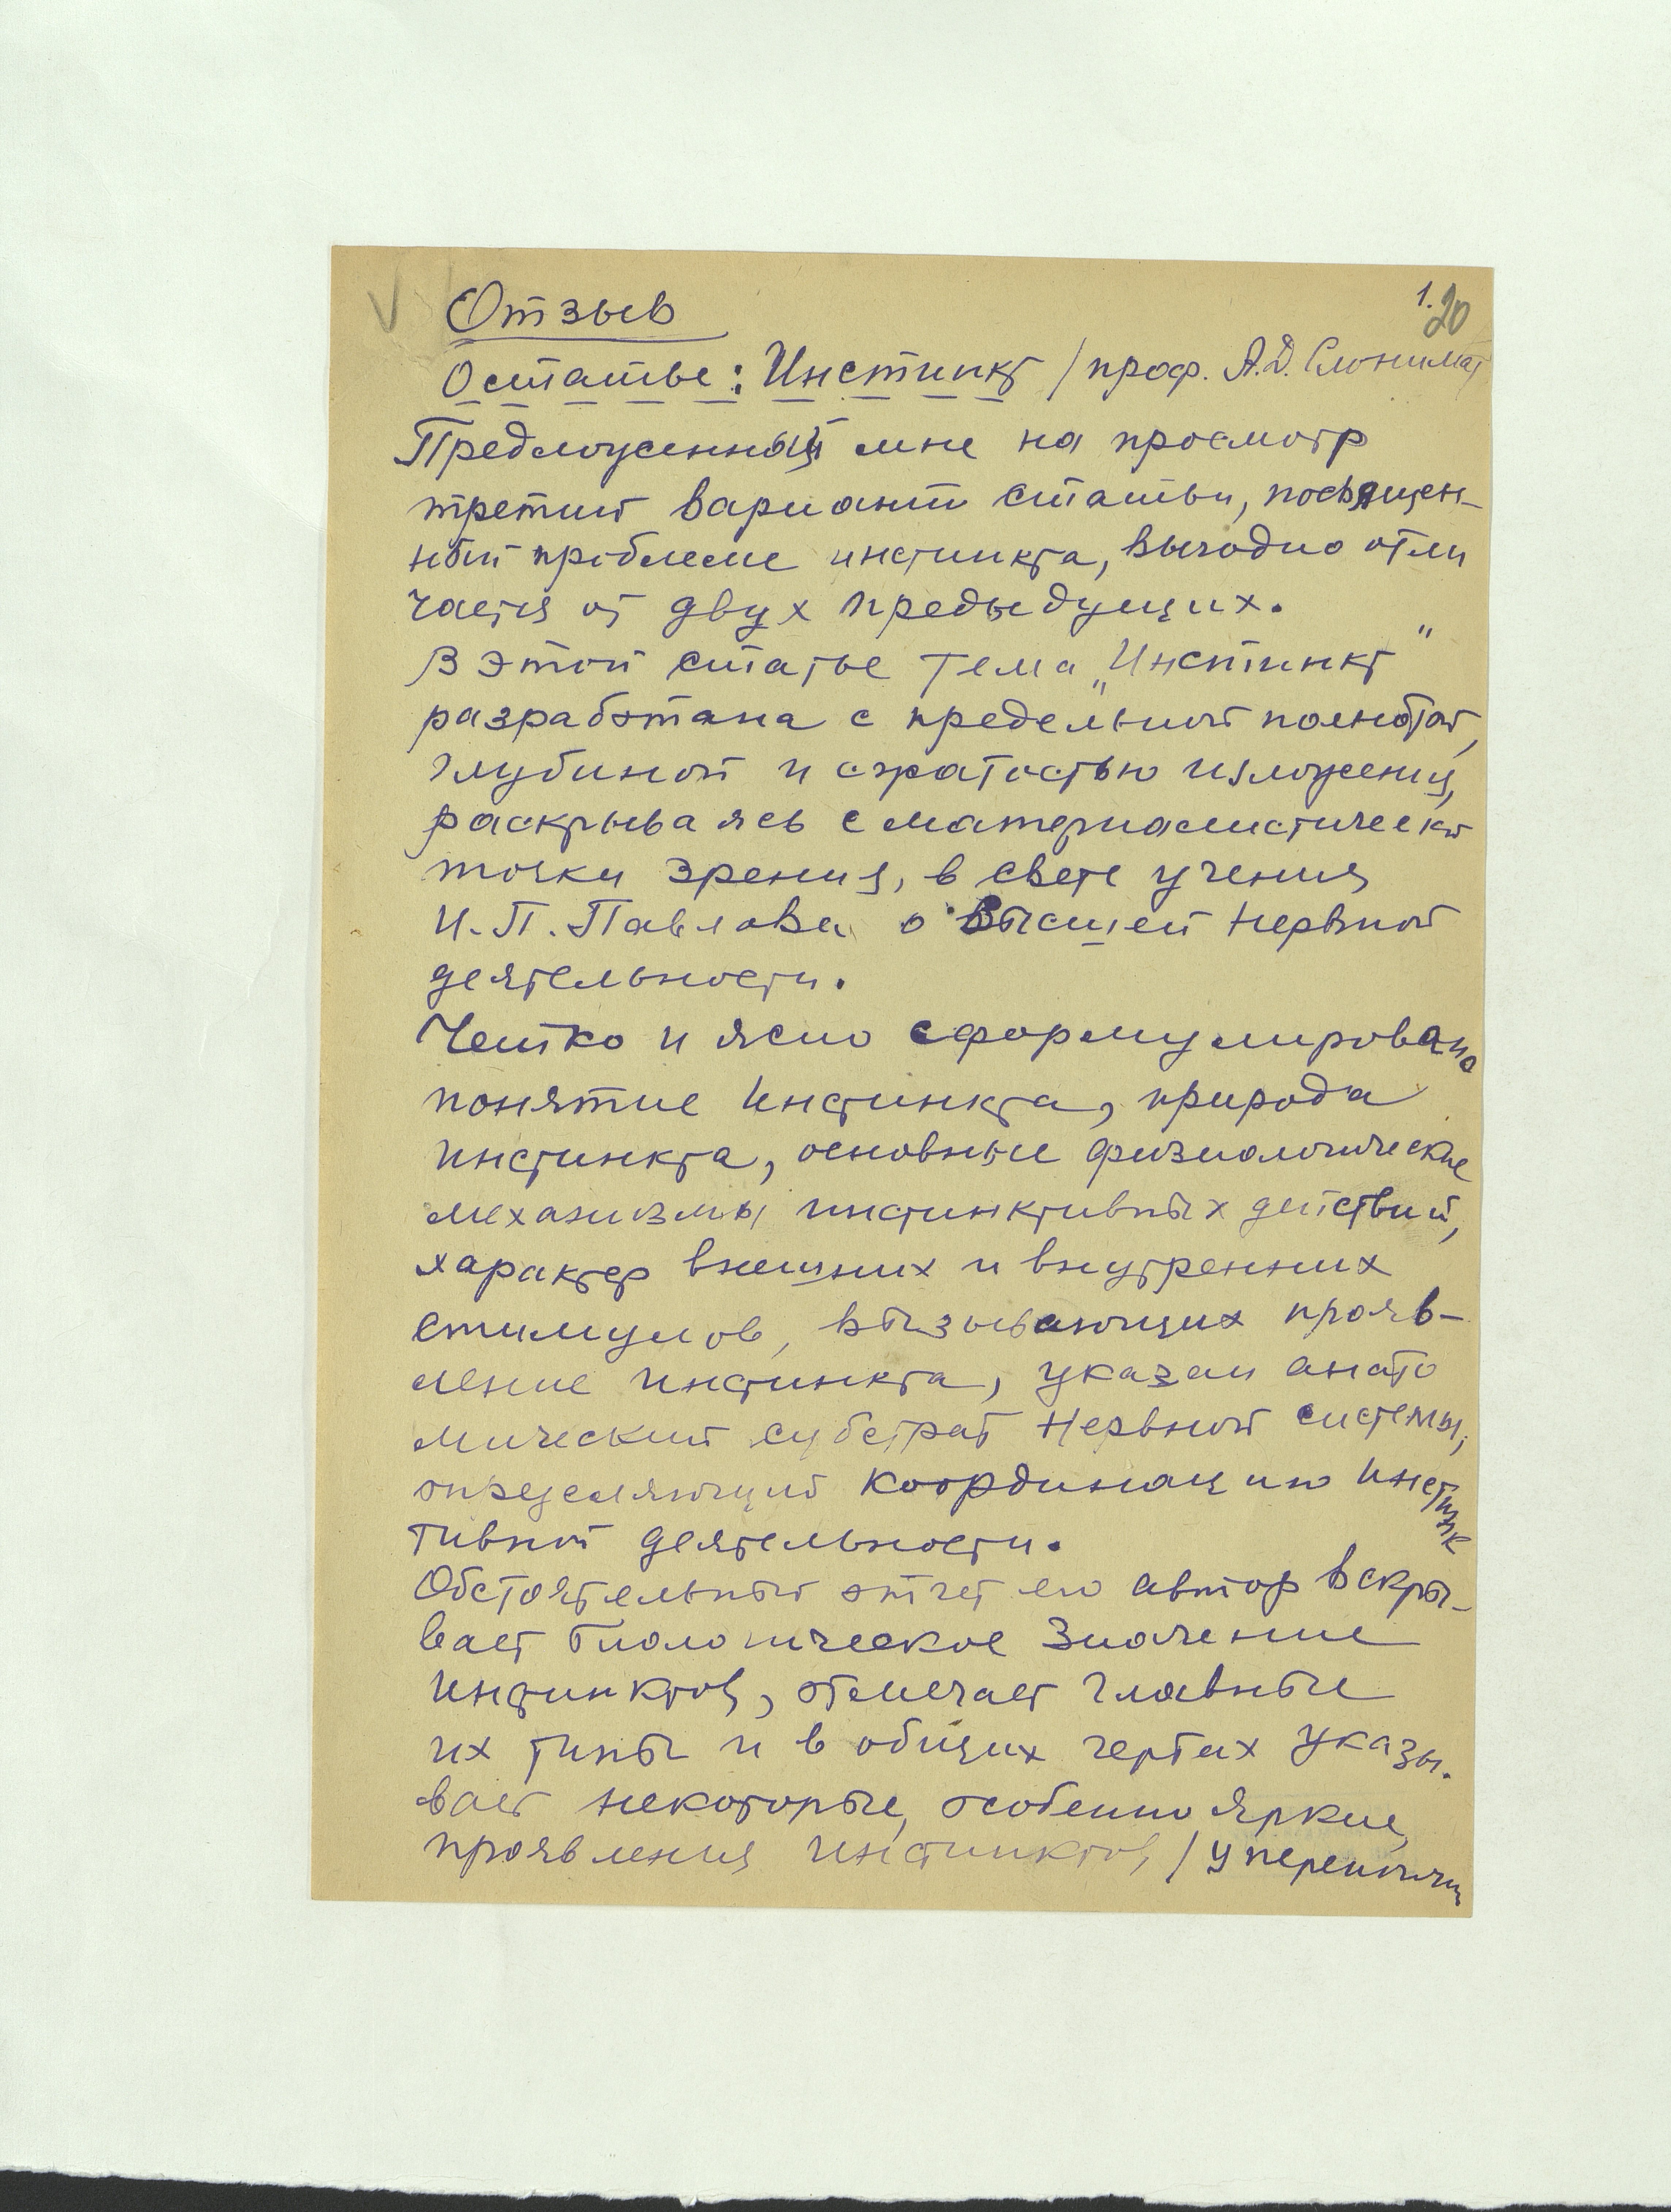 1.
20
Отзыв
О статье: Инстинкт / проф. А.Д. Слонима/
Предложенный мне на просмотр
третий вариант статьи, посвящен-
ный проблеме инстинкта, выгодно отли
чается от двух предыдущих.
В этой статье тема „Инстинкт“
разработана с предельной полнотой,
глубиной и сжатостью изложения,
раскрываясь с материалистической
точки зрения, в свете учения
И.П. Павлова о высшей нервной
деятельности.
Четко и ясно сформулировано
понятие инстинкта, природа
инстинкта, основные физиологические
механизмы инстинктивных действий,
характер внешних и внутренних
стимулов, вызывающих прояв-
ление инстинкта, указан анато
мический субстрат нервной системы,
определяющий координацию инстинк
тивной деятельности.
Обстоятельный отчет его автор вскры-
вает биологическое значение
инстинктов, отмечает главные
их типы и в общих чертах указы-
вает некоторые, особенно яркие,
проявления инстинктов, / у перепончат